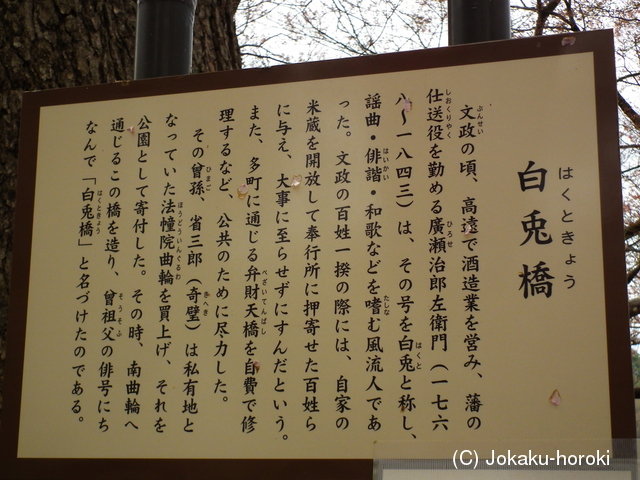 白兎橋
はくときょう
文政の頃、高遠で酒造業を営み、藩の
ぶんせい
仕送役を勤める廣瀬治郎左衛門（一七六
しおくりやく
ひろせ
八〜一八四三）は、その号を白兎と称し、
はくと
謡曲・俳諧・和歌などを嗜む風流人であ
はいかい
たしな
った。文政の百姓一揆の際には、自家の
米蔵を開放して奉行所に押寄せた百姓ら
に与え、大事に至らせずにすんだという。
また、多町に通じる弁財天橋を自費で修
べざいてんばし
理するなど、公共のために尽力した。
その曾孫、省三郎（奇壁）は私有地と
ひまご
きへき
なっていた法幢院曲輪を買上げ、それを
ほうどういんぐるわ
公園として寄付した。その時、南曲輪へ
通じるこの橋を造り、曾祖父の俳号にち
そうそふ
なんで「白兎橋」と名づけたのである。
はくときょう
(C) Jokaku-horoki